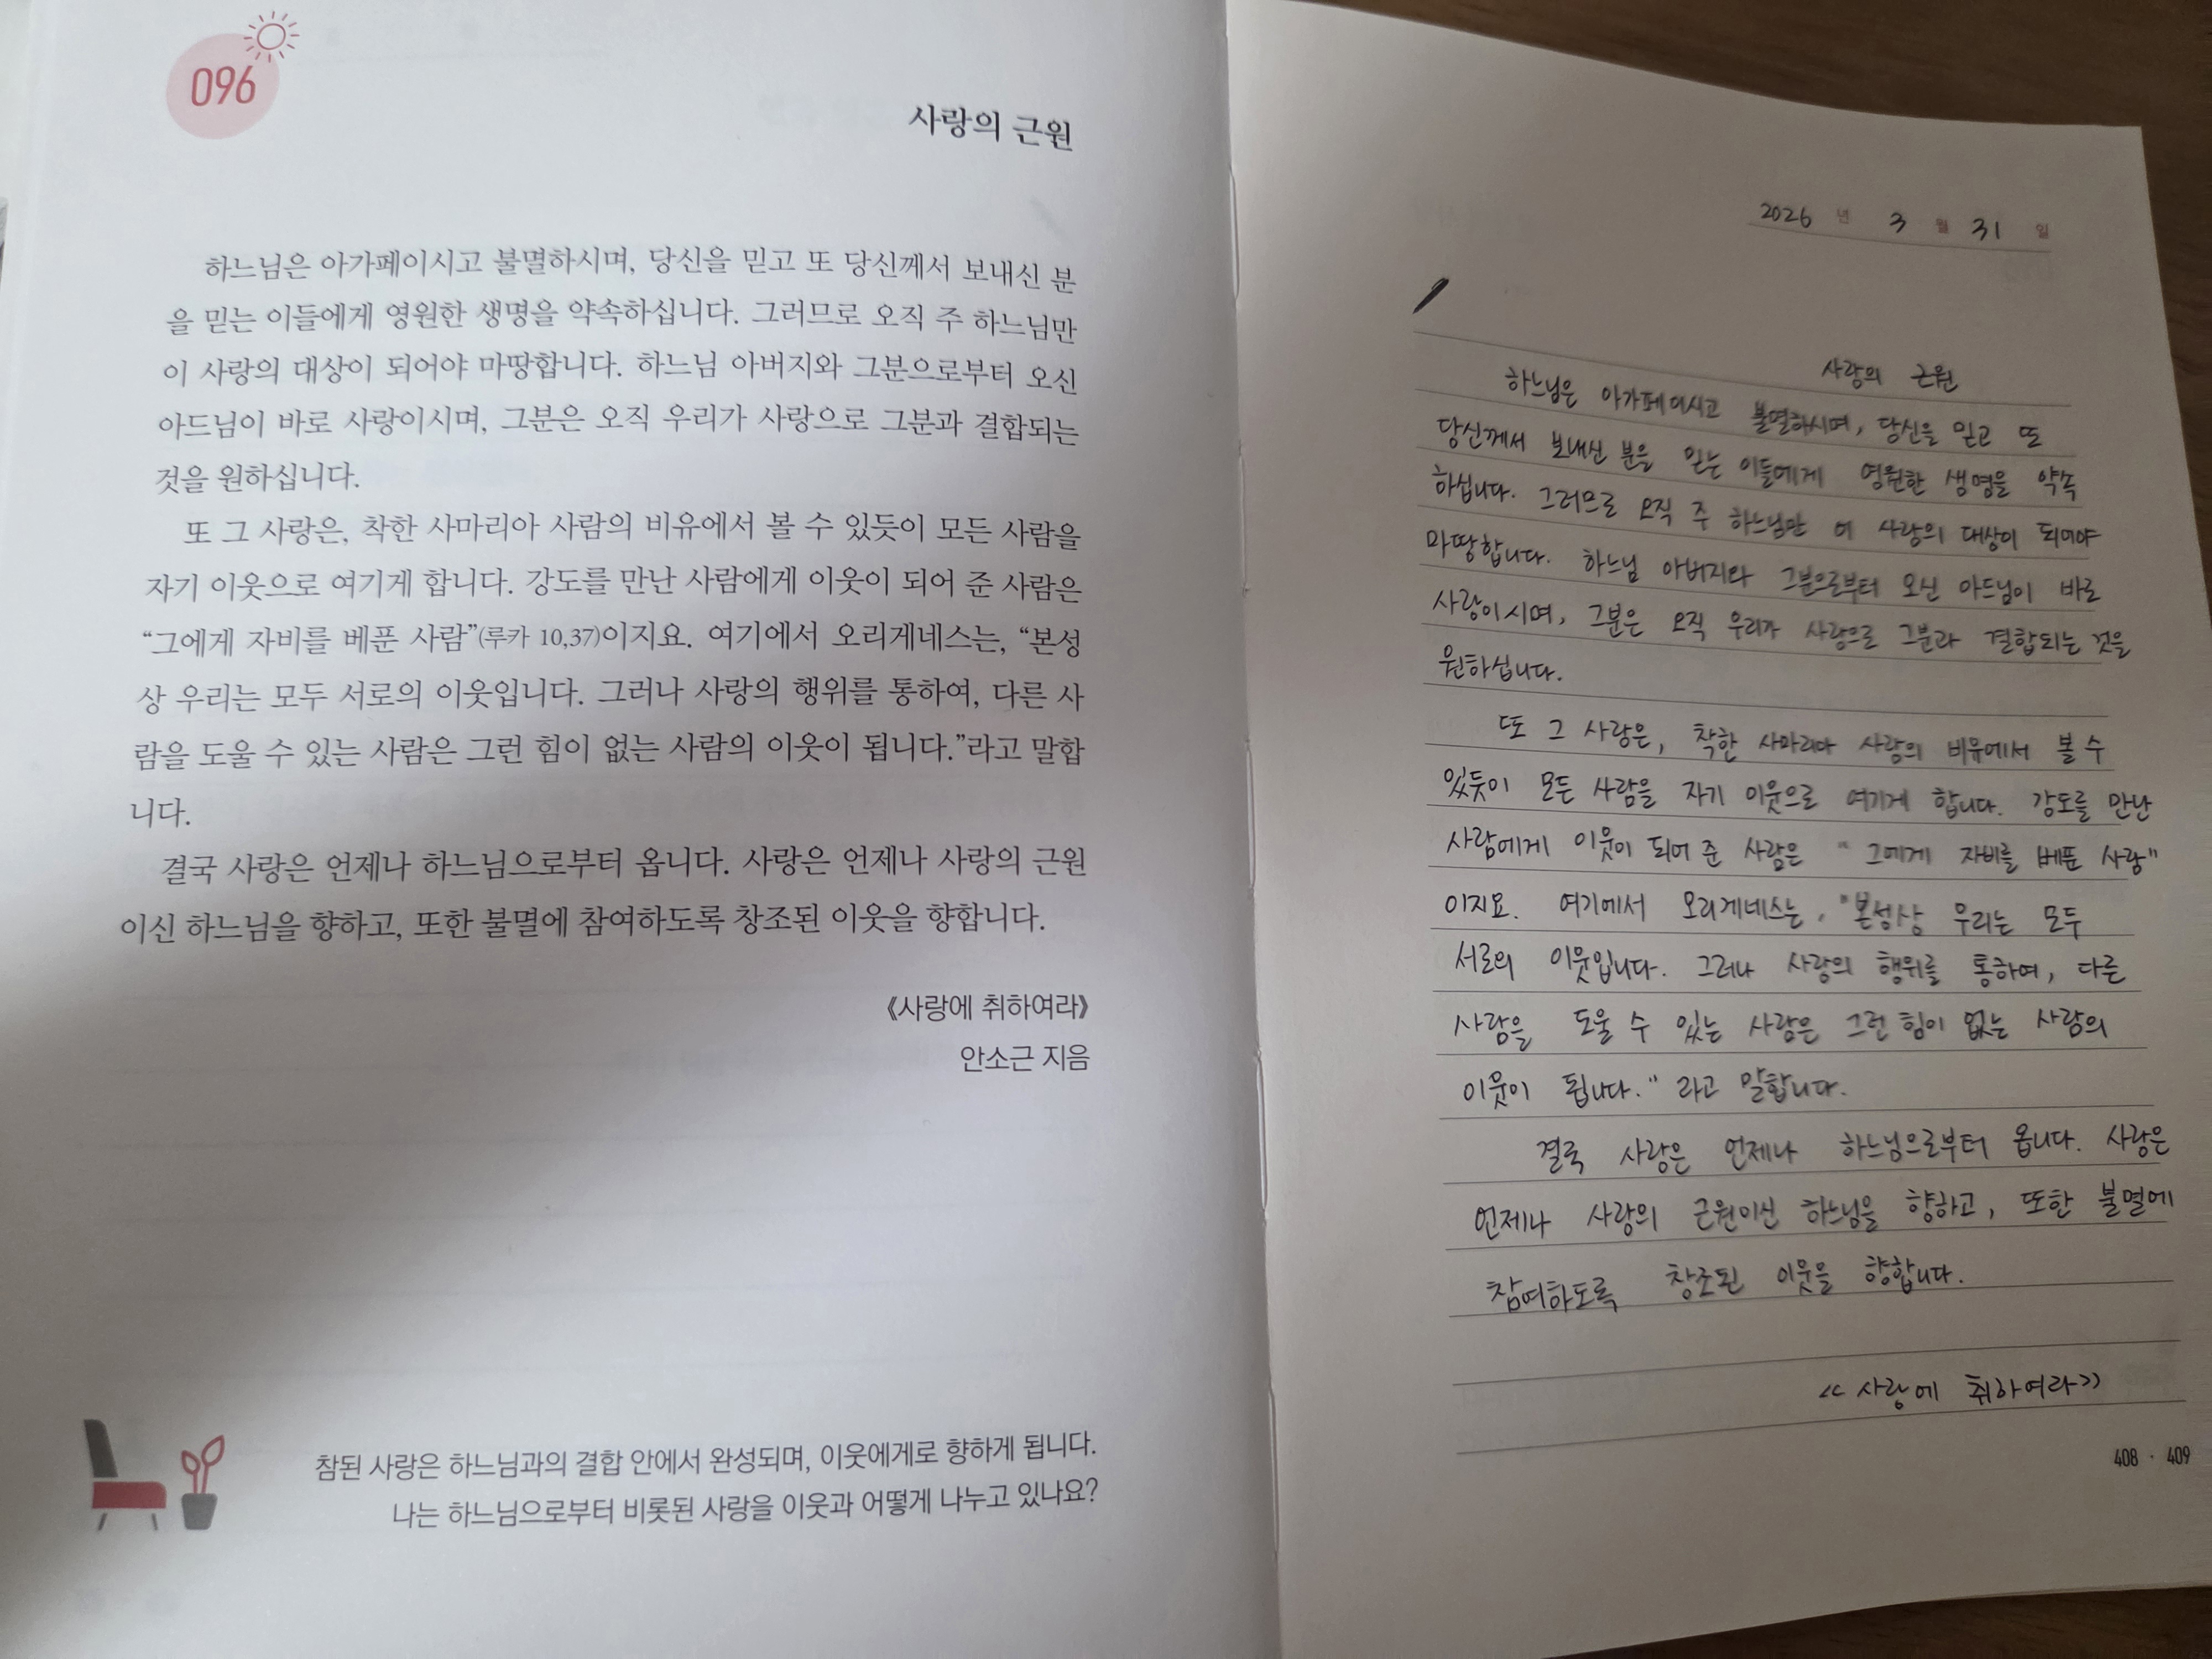 096
사랑의 근원
하느님은 아가페이시고 불멸하시며, 당신을 믿고 또 당신께서 보내신 분
을 믿는 이들에게 영원한 생명을 약속하십니다. 그러므로 오직 주 하느님만
이 사랑의 대상이 되어야 마땅합니다. 하느님 아버지와 그분으로부터 오신
아드님이 바로 사랑이시며, 그분은 오직 우리가 사랑으로 그분과 결합되는
것을 원하십니다.
또 그 사랑은, 착한 사마리아 사람의 비유에서 볼 수 있듯이 모든 사람을
자기 이웃으로 여기게 합니다. 강도를 만난 사람에게 이웃이 되어 준 사람은
“그에게 자비를 베푼 사람”(루카 10,37)이지요. 여기에서 오리게네스는, “본성
상 우리는 모두 서로의 이웃입니다. 그러나 사랑의 행위를 통하여, 다른 사
람을 도울 수 있는 사람은 그런 힘이 없는 사람의 이웃이 됩니다.”라고 말합
니다.
결국 사랑은 언제나 하느님으로부터 옵니다. 사랑은 언제나 사랑의 근원
이신 하느님을 향하고, 또한 불멸에 참여하도록 창조된 이웃을 향합니다.
《사랑에 취하여라》
안소근 지음
참된 사랑은 하느님과의 결합 안에서 완성되며, 이웃에게로 향하게 됩니다.
나는 하느님으로부터 비롯된 사랑을 이웃과 어떻게 나누고 있나요?
2026 년 3 월 31 일
사랑의 근원
하느님은 아가페이시고 불멸하시며, 당신을 믿고 또
당신께서 보내신 분을 믿는 이들에게 영원한 생명을 약속
하십니다. 그러므로 오직 주 하느님만 이 사랑의 대상이 되어야
마땅합니다. 하느님 아버지와 그분으로부터 오신 아드님이 바로
사랑이시며, 그분은 오직 우리가 사랑으로 그분과 결합되는 것을
원하십니다.
또 그 사랑은, 착한 사마리아 사랑의 비유에서 볼 수
있듯이 모든 사람을 자기 이웃으로 여기게 합니다. 강도를 만난
사람에게 이웃이 되어 준 사람은 "그에게 자비를 베푼 사랑"
이지요. 여기에서 오리게네스는, "본성상 우리는 모두
서로의 이웃입니다. 그러나 사랑의 행위를 통하여, 다른
사람을 도울 수 있는 사람은 그런 힘이 없는 사람의
이웃이 됩니다." 라고 말합니다.
결국 사랑은 언제나 하느님으로부터 옵니다. 사랑은
언제나 사랑의 근원이신 하느님을 향하고, 또한 불멸에
참여하도록 창조된 이웃을 향합니다.
<< 사랑에 취하여라>>
408 · 409